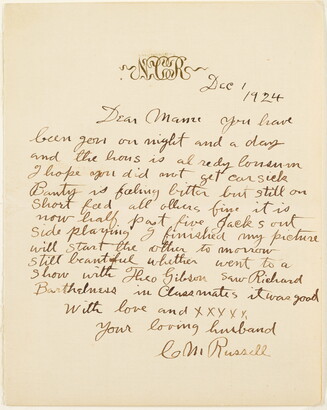 NCR
Dec 1
1924
Dear Mame you have
been gon on night and a day
and the hous is alredy lonsum
I hope you did not get carsick
Punty is feeling bitter but still on
short feed all others fine it is
now half past five Jack's out
side playing I finished my picture
will start the other to morrow
still beautiful whether went to a
show with Theo Gibson saw Richard
Barthelness in Classmates it was good
With love and XXYXX
Your loving husband
C M Russell